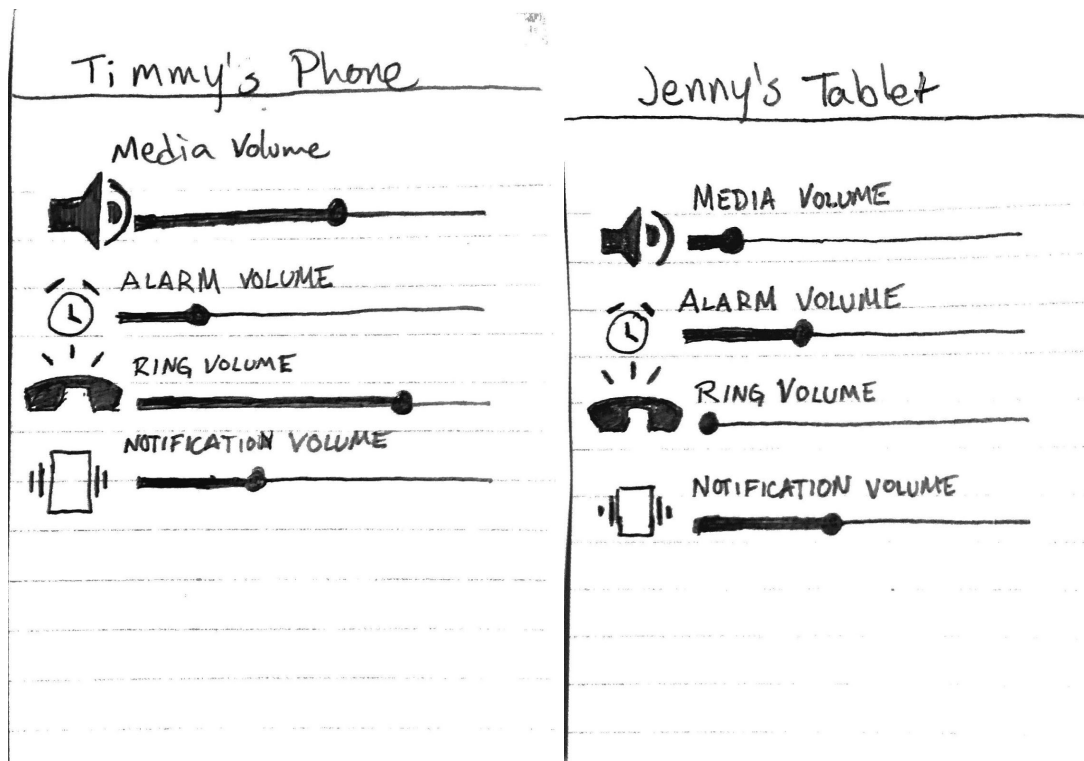 Timmy's Phone
Media Volume
ALARM VOLUME
RING VOLUME
NOTIFICATION VOLUME
Jenny's Tablet
MEDIA VOLUME
ALARM VOLUME
RING VOLUME
NOTIFICATION VOLUME